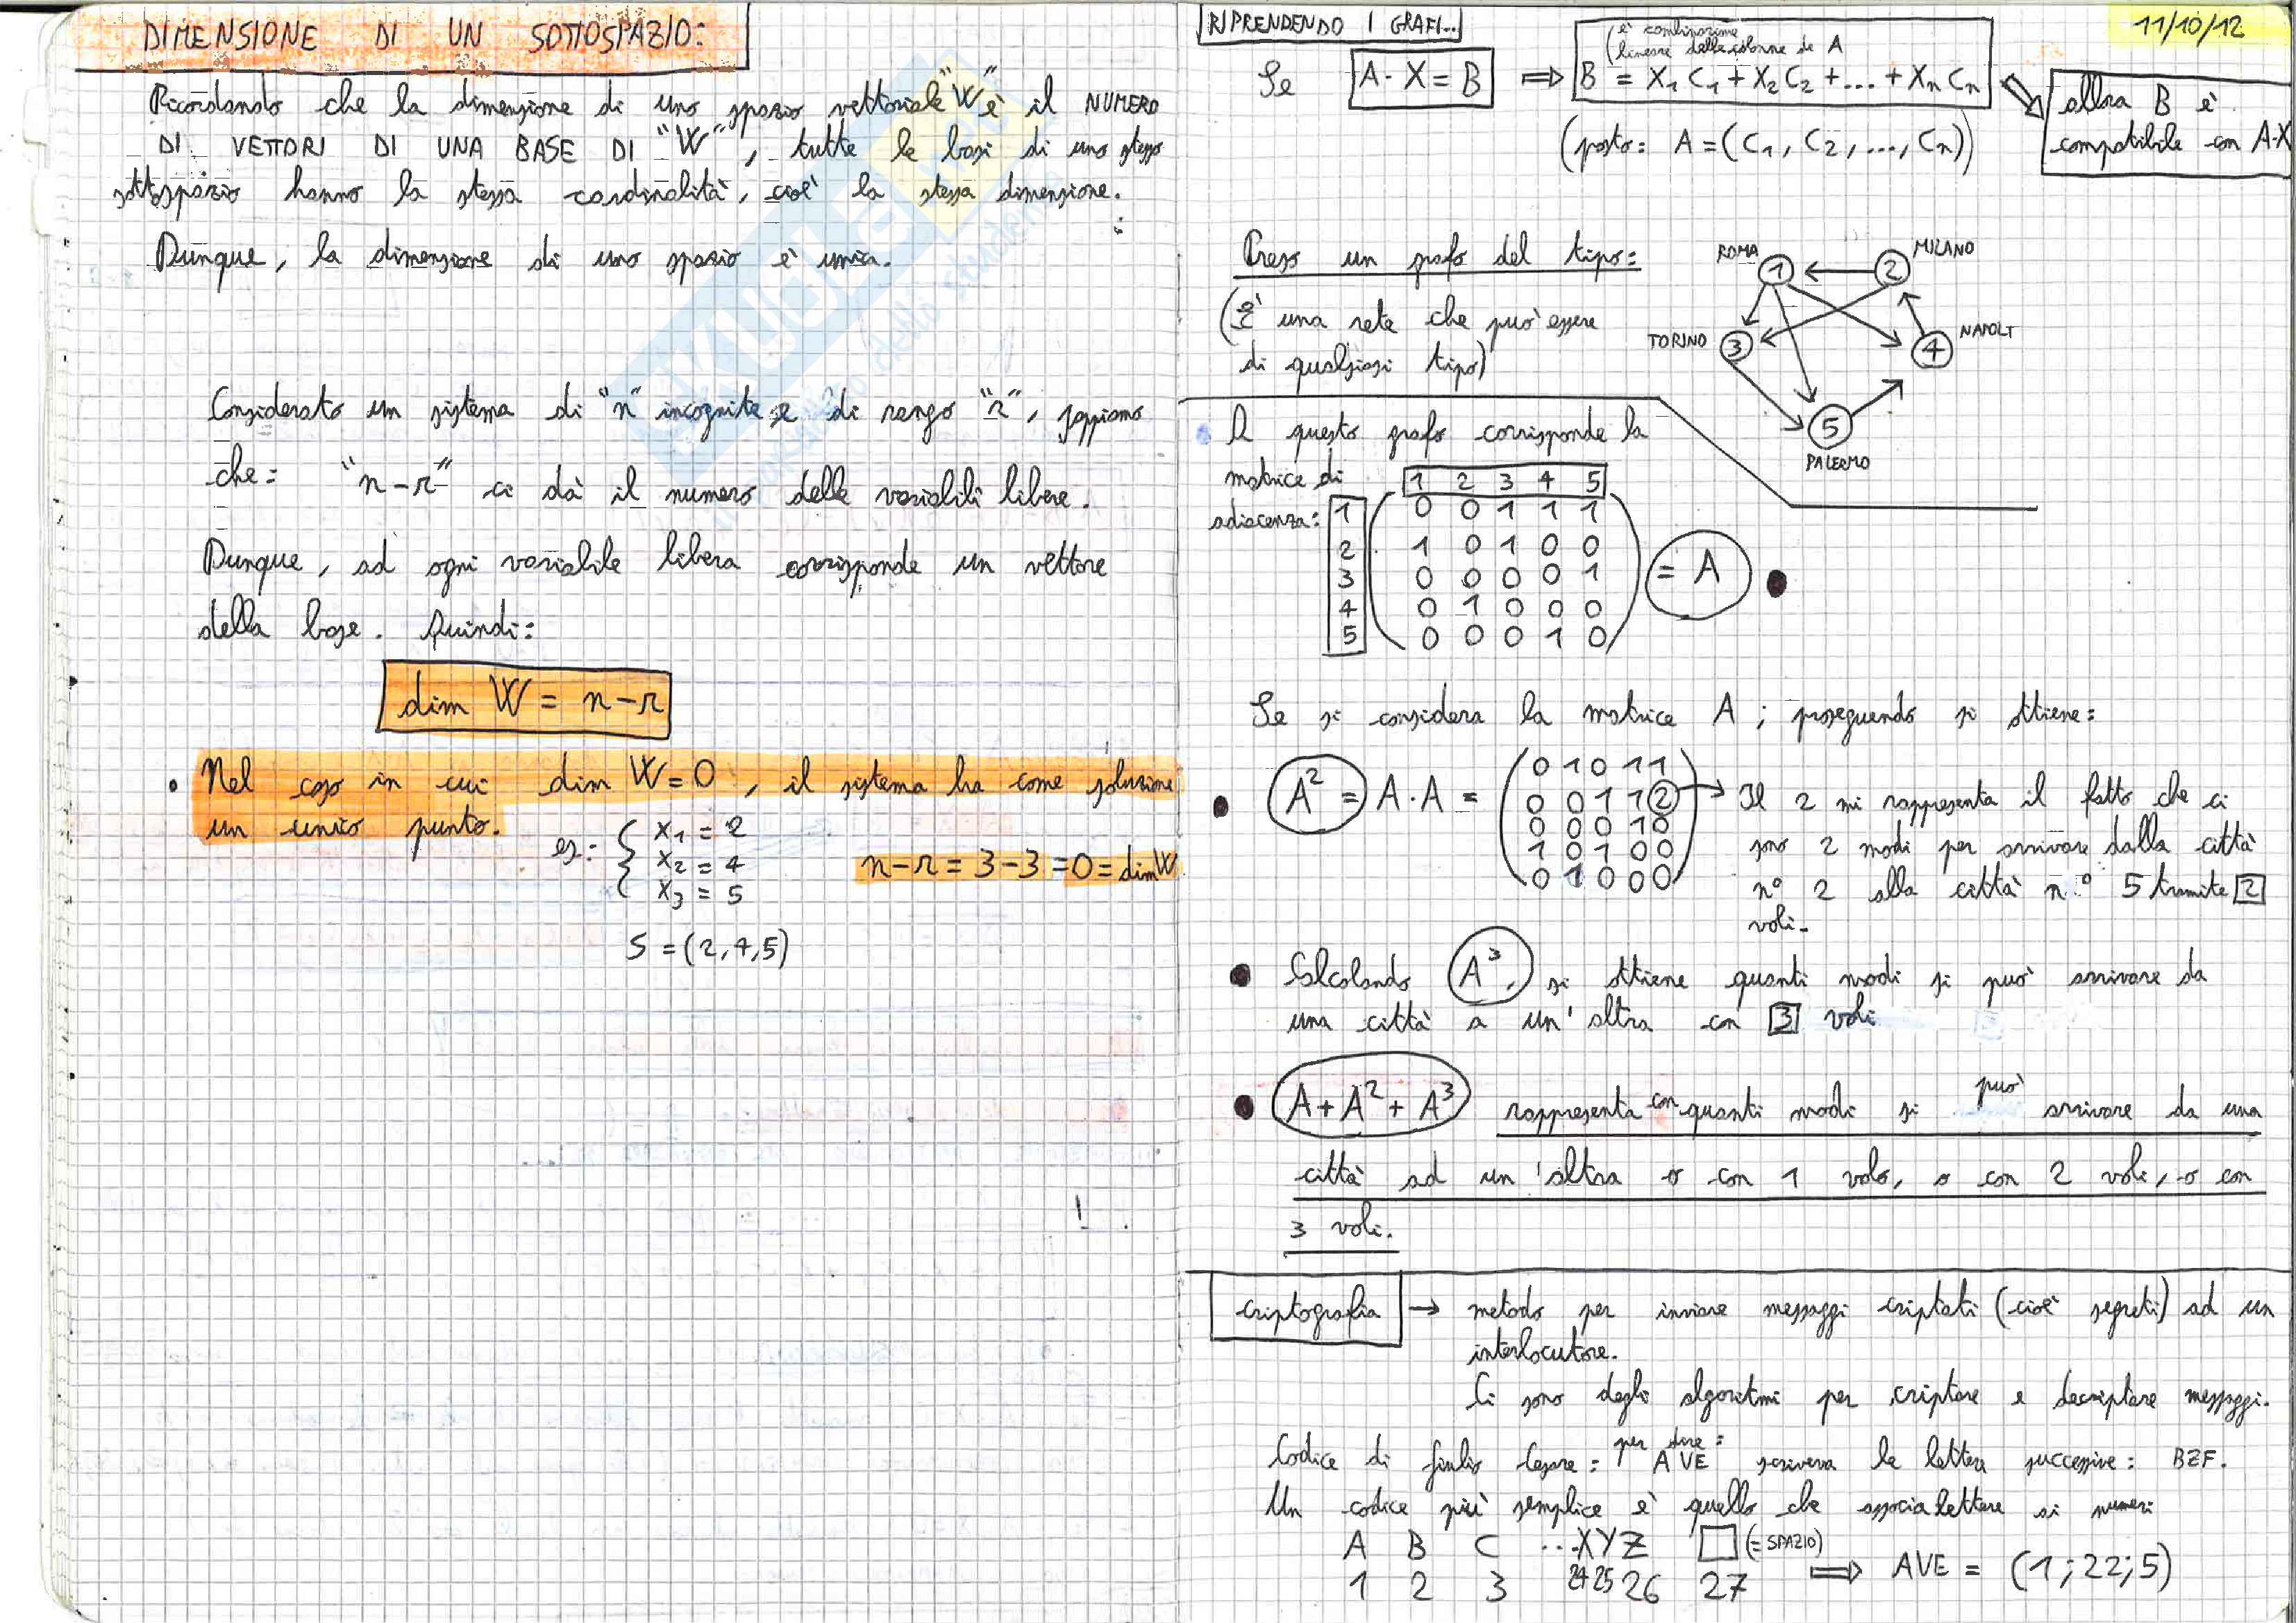 DIMENSIONE DI UN SOTTOSPAZIO:
Ricordando che la dimensione di uno spazio vettoriale "W" è il NUMERO
DI VETTORI DI UNA BASE DI "W", tutte le basi di uno stesso
sottospazio hanno la stessa cardinalità, cioè la stessa dimensione.
Dunque, la dimensione di uno spazio è unica.
Considerato un sistema di "n" incognite e di rango "r", sappiamo
che: "n-r" ci dà il numero delle variabili libere.
Dunque, ad ogni variabile libera corrisponde un vettore
della base. Quindi:
dim W = n-r
• Nel caso in cui dim W=0, il sistema ha come soluzione
un unico punto.
es: { x₁ = 2
x₂ = 4
x₃ = 5
n-r = 3-3 = 0 = dim W
S = (2,4,5)
RIPRENDENDO I GRAFI...
11/10/12
(è combinazione
lineare delle colonne di A
Se A·X=B ⇒ B = X₁C₁+X₂C₂+...+XnCn
allora B è
compatibile con A·X
(posto: A=(C₁, C₂, ..., Cn))
Preso un grafo del tipo:
(È una rete che può essere
di qualsiasi tipo)
ROMA 1
2 MILANO
TORINO 3
4 NAPOLI
5
PALERMO
A questo grafo corrisponde la
matrice di
adiacenza:
1 2 3 4 5
1 0 0 1 1 1
2 1 0 1 0 0
3 0 0 0 0 1
4 0 1 0 0 0
5 0 0 0 1 0
= A
Se si considera la matrice A; proseguendo si ottiene:
• A² = A·A =
0 1 0 1 1
0 0 1 1 2
0 0 0 1 0
1 0 1 0 0
0 1 0 0 0
→ Il 2 mi rappresenta il fatto che ci
sono 2 modi per arrivare dalla città
n° 2 alla città n.° 5 tramite 2
voli.
• Calcolando A³, si ottiene quanti modi si può arrivare da
una città a un'altra con 3 voli
• A+A²+A³ rappresenta con quanti modi si può arrivare da una
città ad un'altra o con 1 volo, o con 2 voli, o con
3 voli.
criptografia → metodo per inviare messaggi criptati (cioè segreti) ad un
interlocutore.
Ci sono degli algoritmi per criptare e decriptare messaggi.
Codice di Giulio Cesare: per dire: AVE scriveva le lettere successive: BZF.
Un codice più semplice è quello che associa lettere ai numeri
A B C ... X Y Z □ (=SPAZIO)
1 2 3 24 25 26 27 ⇒ AVE = (1;22;5)